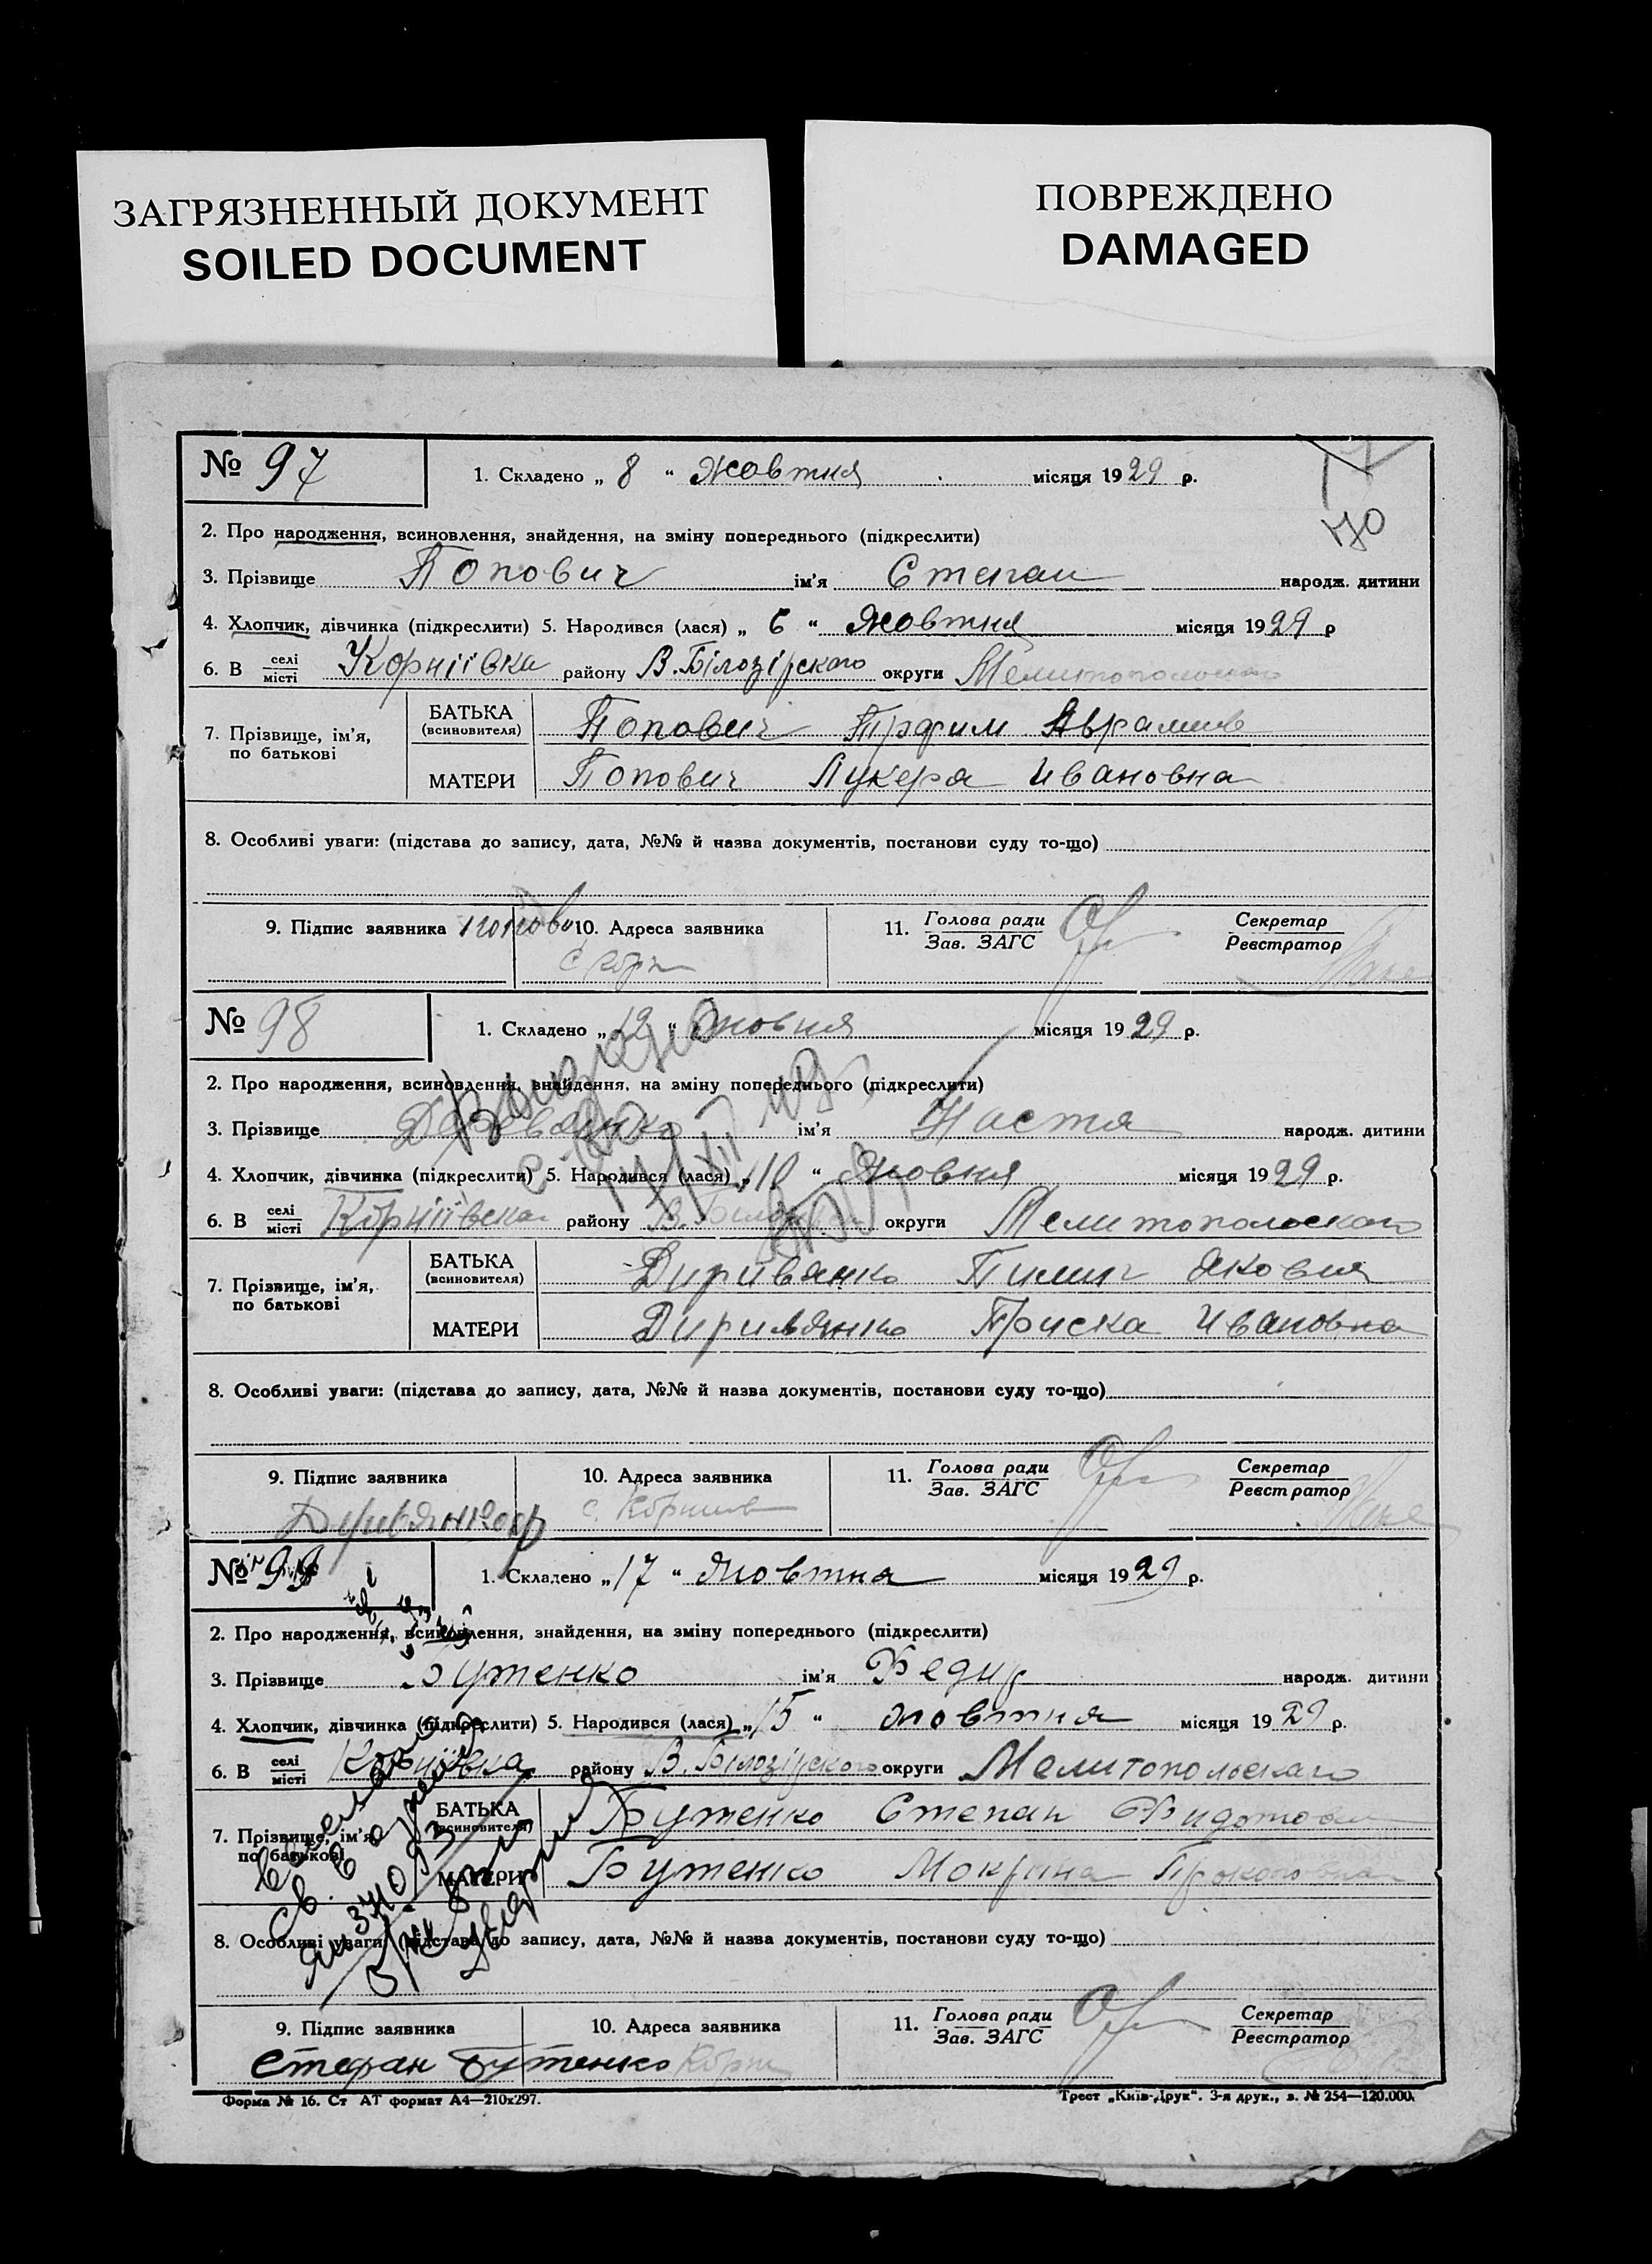 ЗАГРЯЗНЕННЫЙ ДОКУМЕНТ
SOILED DOCUMENT
ПОВРЕЖДЕНО
DAMAGED
№ 97
1. Складено „ 8 “ Жовтня місяця 1929 р.
170
2. Про народження, всиновлення, знайдення, на зміну попереднього (підкреслити)
3. Прізвище Попович ім'я Степан народж. дитини
4. Хлопчик, дівчинка (підкреслити) 5. Народився (лася) „ 6 “ Жовтня місяця 1929 р
6. В селі місті Корніївка району В. Білозірского округи Мелитопольского
7. Прізвище, ім'я, по батькові
БАТЬКА (всиновителя) Попович Трофим Аврамив
МАТЕРИ Попович Лукеря Ивановна
8. Особливі уваги: (підстава до запису, дата, №№ й назва документів, постанови суду то-що)
9. Підпис заявника Попови 10. Адреса заявника
11. Голова ради Зав. ЗАГС
Секретар Реєстратор
№ 98
1. Складено „ 12 “ Жовня місяця 1929 р.
2. Про народження, всиновлення, знайдення, на зміну попереднього (підкреслити)
3. Прізвище Деревянко ім'я Настя народж. дитини
4. Хлопчик, дівчинка (підкреслити) 5. Народився (лася) „ 10 “ Жовня місяця 1929 р.
6. В селі місті Корніївка району В. округи Мелитопольского
7. Прізвище, ім'я, по батькові
БАТЬКА (всиновителя) Диривянко Пилип Якович
МАТЕРИ Диривянко Приска Ивановна
8. Особливі уваги: (підстава до запису, дата, №№ й назва документів, постанови суду то-що)
9. Підпис заявника 10. Адреса заявника
11. Голова ради Зав. ЗАГС
Секретар Реєстратор
№ 99
1. Складено „ 17 “ Жовтна місяця 1929 р.
2. Про народження, всиновлення, знайдення, на зміну попереднього (підкреслити)
3. Прізвище Бутенко ім'я Федир народж. дитини
4. Хлопчик, дівчинка (підкреслити) 5. Народився (лася) „ 15 “ Жовтня місяця 1929 р.
6. В селі місті Корніївка району В. Білозірского округи Мелитопольскаго
7. Прізвище, ім'я, по батькові
БАТЬКА (всиновителя) Бутенко Степан
МАТЕРИ Бутенко Мокрина Прокоповна
8. Особливі уваги: (підстава до запису, дата, №№ й назва документів, постанови суду то-що)
9. Підпис заявника 10. Адреса заявника
Стефан Бутенко
11. Голова ради Зав. ЗАГС
Секретар Реєстратор
Форма № 16. Ст АТ формат А4—210х297.
Трест „Київ-Друк“. 3-я друк., з. № 254—120.000.